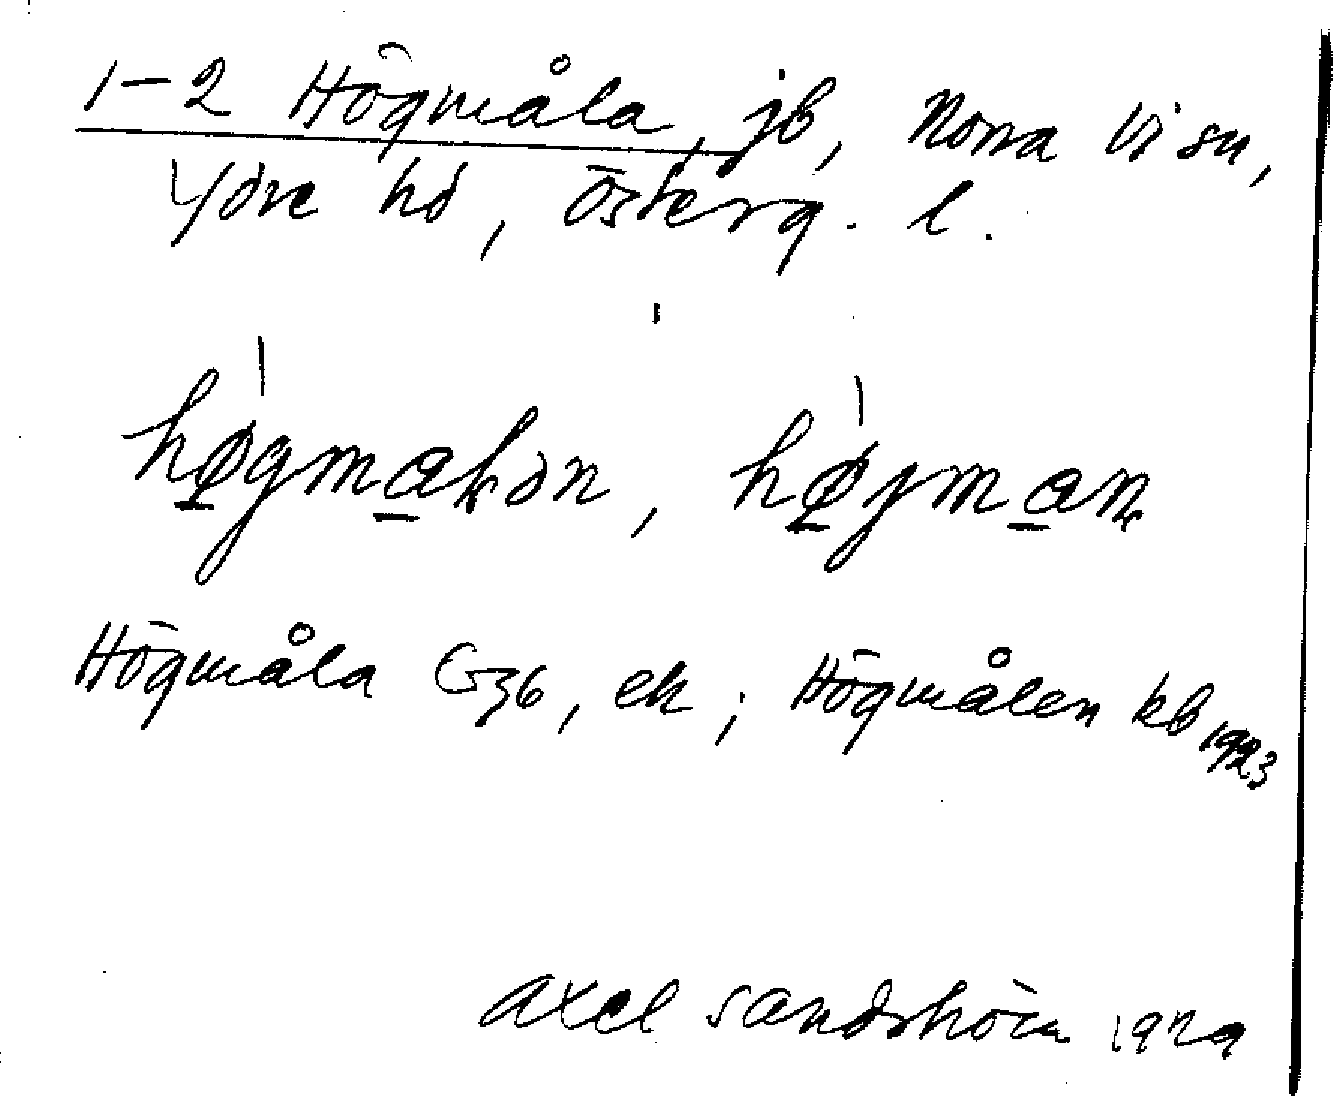 1-2 Högmåla, jb, Norra Vi sn,
Ydre hd, Österg. l.
høgmaɭən, høgmaɳ
Högmåla G36, ek; Högmålen kb 1923
Axel Sandsköin 1929